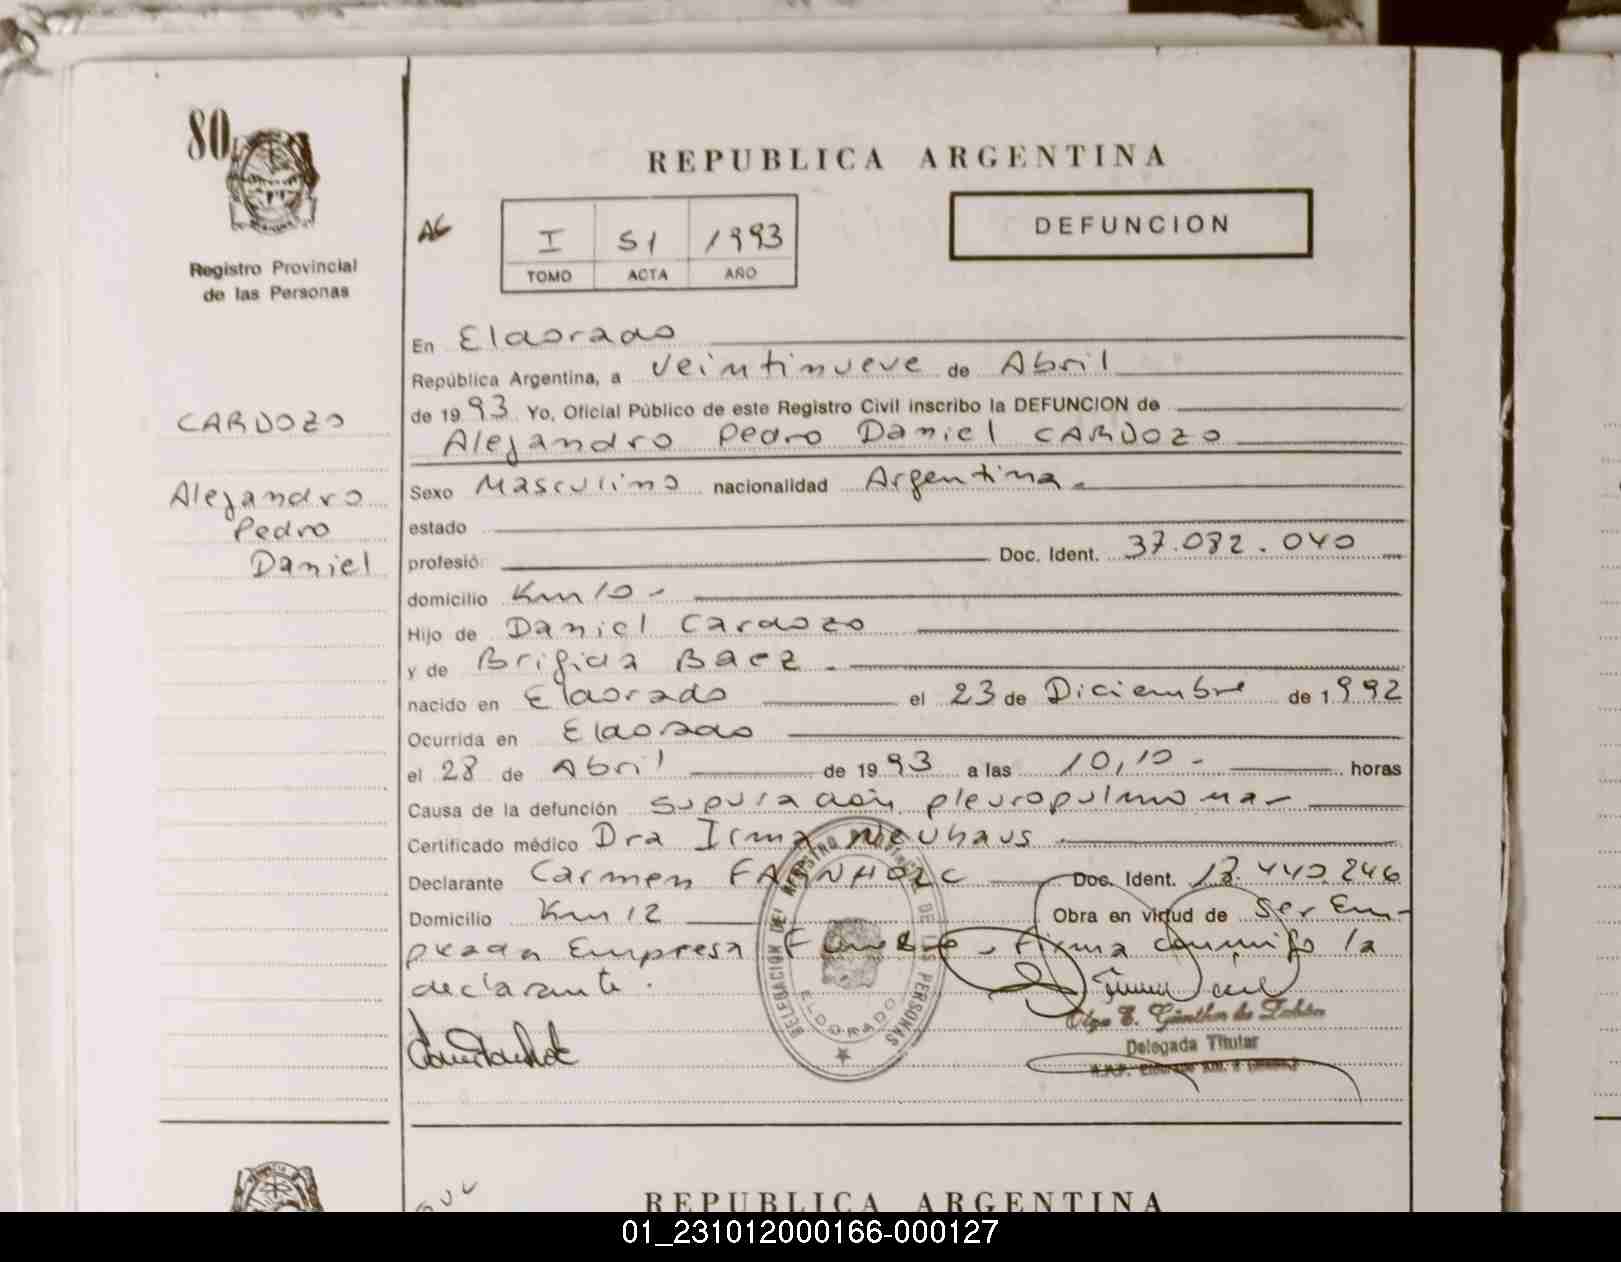 80
Registro Provincial
de las Personas
CARDOZO
Alejandro
Pedro
Daniel
REPUBLICA ARGENTINA
I 51 1993
TOMO ACTA AÑO
DEFUNCION
En Eldorado
República Argentina, a veintinueve de Abril
de 1993 Yo, Oficial Público de este Registro Civil inscribo la DEFUNCION de
Alejandro Pedro Daniel CARDOZO
Sexo Masculino nacionalidad Argentina.
estado
profesió Doc. Ident. 37.082.040
domicilio Km 10 -
Hijo de Daniel Cardozo
y de Brigida Baez -
nacido en Eldorado el 23 de Diciembre de 1992
Ocurrida en Eldorado
el 28 de Abril de 1993 a las 10,10 - horas horas
Causa de la defunción supuración pleuropulmonar
Certificado médico Dra Irma Neuhaus
Declarante Carmen Doc. Ident.
Domicilio Km 12 Obra en virtud de ser Em-
pleada Empresa Funebre, firma conmigo la
declarante.
DELEGACION DEL REGISTRO PROVINCIAL DE LAS PERSONAS
ELDORADO
Olga E. Günther de
Delegada Titular
REPUBLICA ARGENTINA
01_231012000166-000127